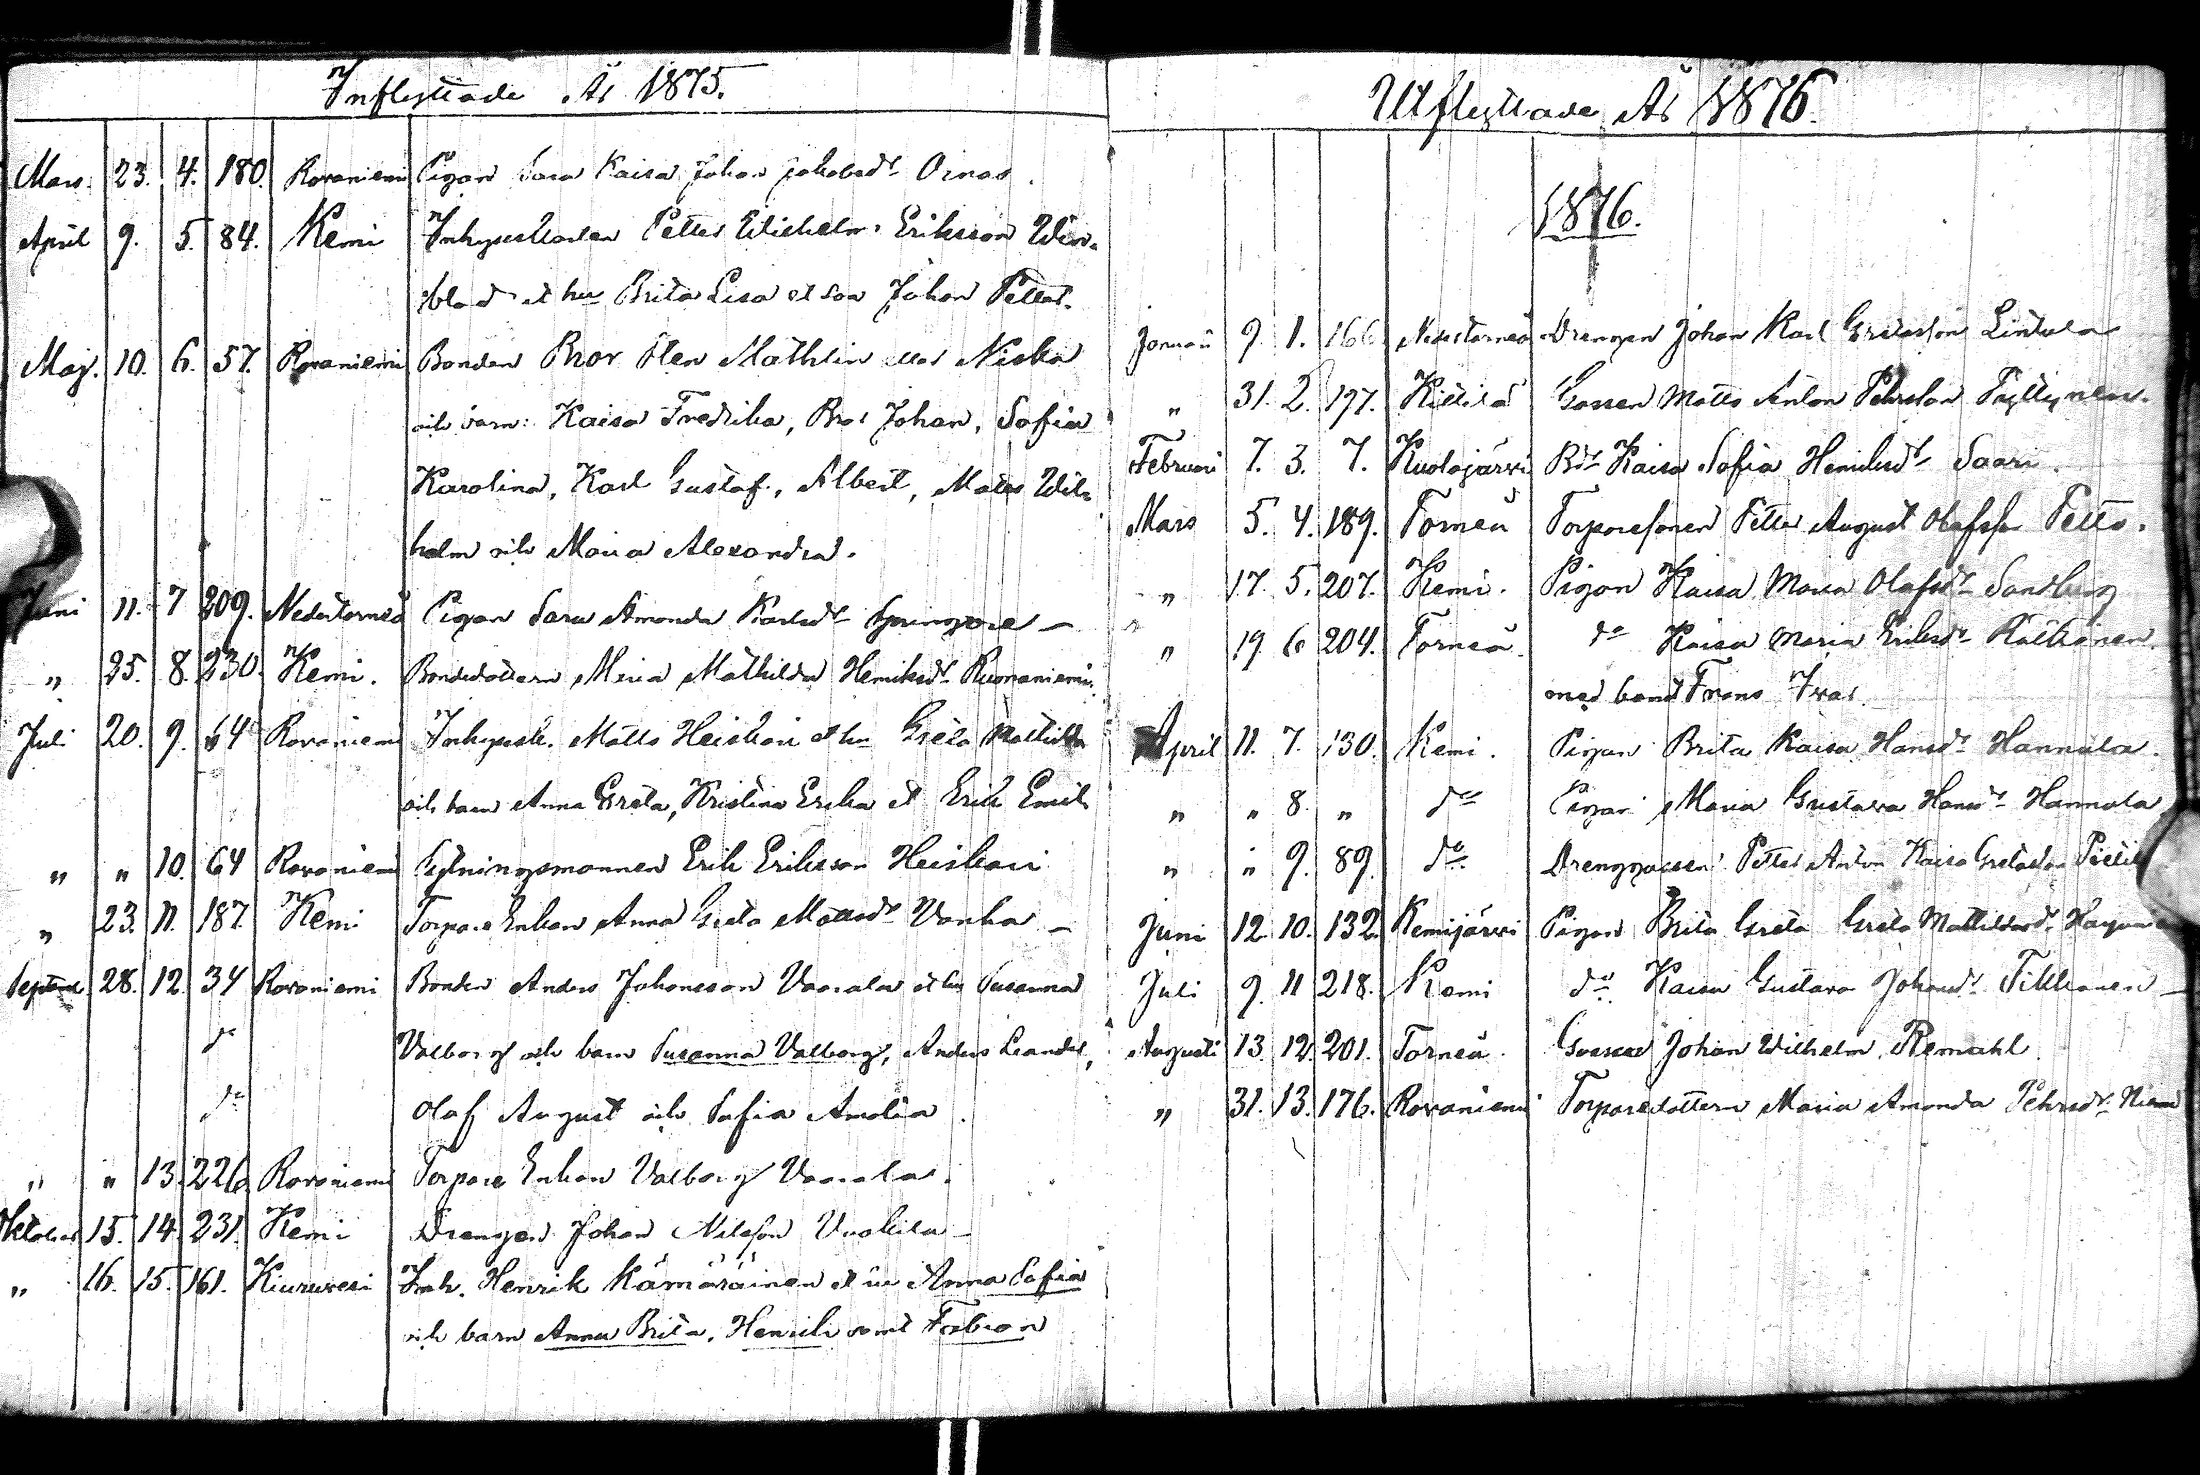 Inflyttade År 1875.
Mars. 23. 4. 180. Rovaniemi Pigan Sara Kaisa Johan Jakobsdr Oinas.
April 9. 5. 84. Kemi Inhyseskarlen Petter Wilhelm Eriksson Win-
blad et hu Brita Lisa et son Johan Petter.
Maj. 10. 6. 57. Rovaniemi Bonden Bror Mathlin eller Niska
och barn: Kaisa Fredrika, Bror Johan, Sofia
Karolina, Karl Gustaf, Albert, Matts Wil-
helm och Maria Alexandra.
Juni 11. 7 209. Nedertorneå Pigan Sara Amanda Karlsdr
" 25. 8. 230. Kemi. Bondedottern Maria Mathilda Henriksdr Ruonaniemi.
Juli 20. 9. 64 Rovaniemi Inhyses. Matts Heiskari et hu Greta Mathilda
och barn Anna Greta, Kristina Erika et Erik Emil
" " 10. 64 Rovaniemi Sytningsmannen Erik Eriksson Heiskari
" 23. 11. 187. Kemi Torpare Enkan Anna Greta Mattsdr Vanha
Septemb. 28. 12. 34 Rovaniemi Bonden Anders Johansson Vaarala et hu Susanna
do Valborg och barn Susanna Valborg, Anders Leander,
do Olof August och Sofia Amalia.
" " 13. 226. Rovaniemi Torpare Enkan Valborg Vaarala.
Oktober 15. 14. 231. Kemi Drengen Johan Nilsson Vuokila
" 16. 15. 161. Kiuruvesi Inh. Henrik Kämäräinen et hu Anna Sofia
och barn Anna Brita, Henrik samt Fabian
Utflyttade År 1876.
1876.
Januari 9. 1. 166 Nedertorneå Drengen Johan Karl Gretasson Lintula
" 31. 2. 197. Kittilä Gossen Matts Anton Pehrsson Pyttynen.
Februari 7. 3. 7. Kuolajärvi Bdr Kaisa Sofia Henriksdr Saari.
Mars 5. 4. 189. Torneå Torparesonen Petter August Olofsson Pello.
" 17. 5. 207. Kemi. Pigan Kaisa Maria Olofsdr Sandberg
" 19 6 204. Torneå. do Kaisa Maria Eriksdr Ratkonen.
med barnet Frans Ivar.
April 11. 7. 130. Kemi. Pigan Brita Kaisa Hansdr Hannula.
" " 8. " do Pigan Maria Gustava Hansdr Hannula
" " 9. 89. do Drenggossen Petter Anton Kaisa Gretasson
Juni 12. 10. 132. Kemijärvi Pigan Brita Greta Greta Mathildasdr
Juli 9. 11 218. Kemi do Kaisa Gustava Johansdr Tikkanen
Augusti 13. 12. 201. Torneå. Gossen Johan Wilhelm Remahl
" 31. 13. 176. Rovaniemi Torparedottern Maria Amanda Pehrsdr